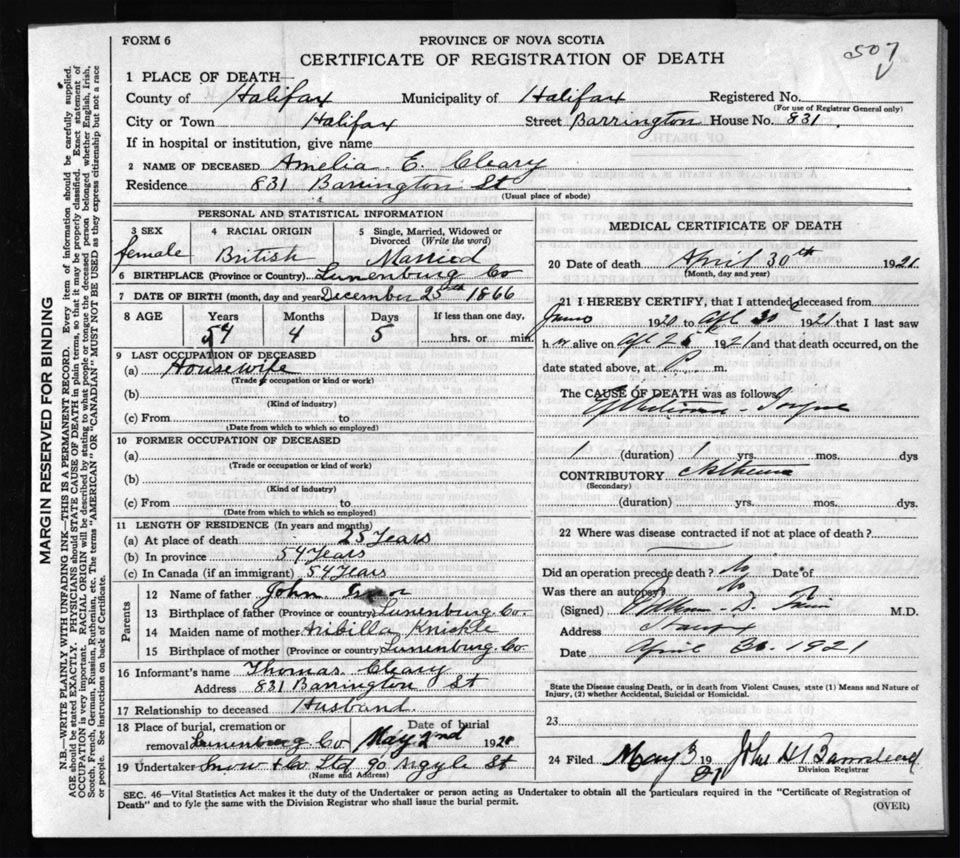 FORM 6
PROVINCE OF NOVA SCOTIA
507
CERTIFICATE OF REGISTRATION OF DEATH
1 PLACE OF DEATH—
County of Halifax Municipality of Halifax Registered No.
(For use of Registrar General only)
City or Town Halifax Street Barrington House No. 831
If in hospital or institution, give name
2 NAME OF DECEASED Amelia E. Cleary
Residence 831 Barrington St
(Usual place of abode)
PERSONAL AND STATISTICAL INFORMATION
3 SEX 4 RACIAL ORIGIN 5 Single, Married, Widowed or
Divorced (Write the word)
female British Married
6 BIRTHPLACE (Province or Country) Lunenburg Co
7 DATE OF BIRTH (month, day and year) December 25th 1866
8 AGE Years Months Days If less than one day,
54 4 5 hrs. or min.
9 LAST OCCUPATION OF DECEASED
(a) Housewife
(Trade or occupation or kind or work)
(b)
(Kind of industry)
(c) From to
(Date from which to which so employed)
10 FORMER OCCUPATION OF DECEASED
(a)
(Trade or occupation or kind of work)
(b)
(Kind of industry)
(c) From to
(Date from which to which so employed)
11 LENGTH OF RESIDENCE (In years and months)
(a) At place of death 25 Years
(b) In province 54 Years
(c) In Canada (if an immigrant) 54 Years
Parents
12 Name of father John
13 Birthplace of father (Province or country) Lunenburg Co.
14 Maiden name of mother Knickle
15 Birthplace of mother (Province or country) Lunenburg Co.
16 Informant's name Thomas Cleary
Address 831 Barrington St
17 Relationship to deceased Husband
18 Place of burial, cremation or Date of burial
removal Lunenburg Co. May 2nd 192
19 Undertaker Snow & Co Ltd 90 Argyle St
(Name and Address)
MEDICAL CERTIFICATE OF DEATH
20 Date of death April 30th 1921
(Month, day and year)
21 I HEREBY CERTIFY, that I attended deceased from
June 1920 to Apl 30 1921 that I last saw
h er alive on Apl 1921 and that death occurred, on the
date stated above, at P. m.
The CAUSE OF DEATH was as follows
1 (duration) 1 yrs. mos. dys
CONTRIBUTORY
(Secondary)
(duration) yrs. mos. dys.
22 Where was disease contracted if not at place of death?
Did an operation precede death? No Date of
Was there an autopsy? No
(Signed) M.D.
Address Halifax
Date April 30. 1921
State the Disease causing Death, or in death from Violent Causes, state (1) Means and Nature of
Injury, (2) whether Accidental, Suicidal or Homicidal.
23
24 Filed May 3 1921 John
Division Registrar
SEC. 46—Vital Statistics Act makes it the duty of the Undertaker or person acting as Undertaker to obtain all the particulars required in the "Certificate of Registration of
Death" and to fyle the same with the Division Registrar who shall issue the burial permit.
(OVER)
MARGIN RESERVED FOR BINDING
N.B.—WRITE PLAINLY WITH UNFADING INK—THIS IS A PERMANENT RECORD. Every item of information should be carefully supplied.
AGE should be stated EXACTLY. PHYSICIANS should STATE CAUSE OF DEATH in plain terms, so that it may be properly classified. Exact statement of
OCCUPATION is very important. RACIAL ORIGIN will be described by stating to what people or tongue the deceased person belonged whether English, Irish,
Scotch, French, German, Russian, Ruthenian, etc. The terms "AMERICAN" OR "CANADIAN" MUST NOT BE USED as they express citizenship but not a race
or people. See instructions on back of Certificate.